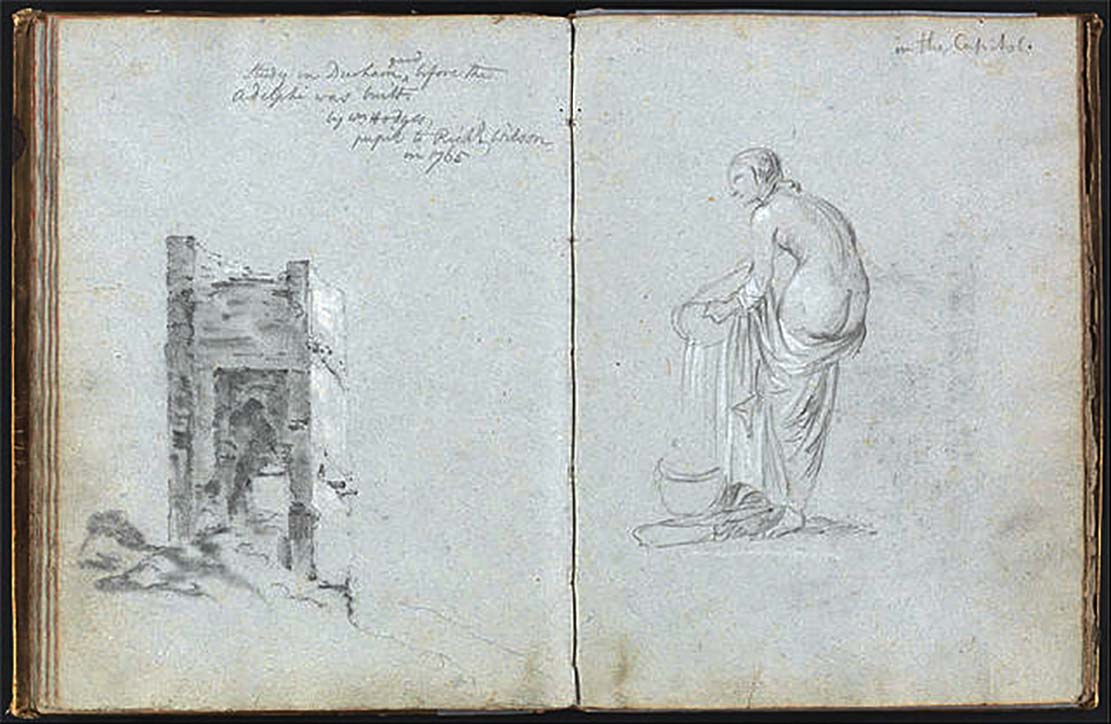 Study in Durham yard before the
Adelphi was built.
by Wm Hodges,
pupil to Richd. Wilson
in 1765
in the Capitol.